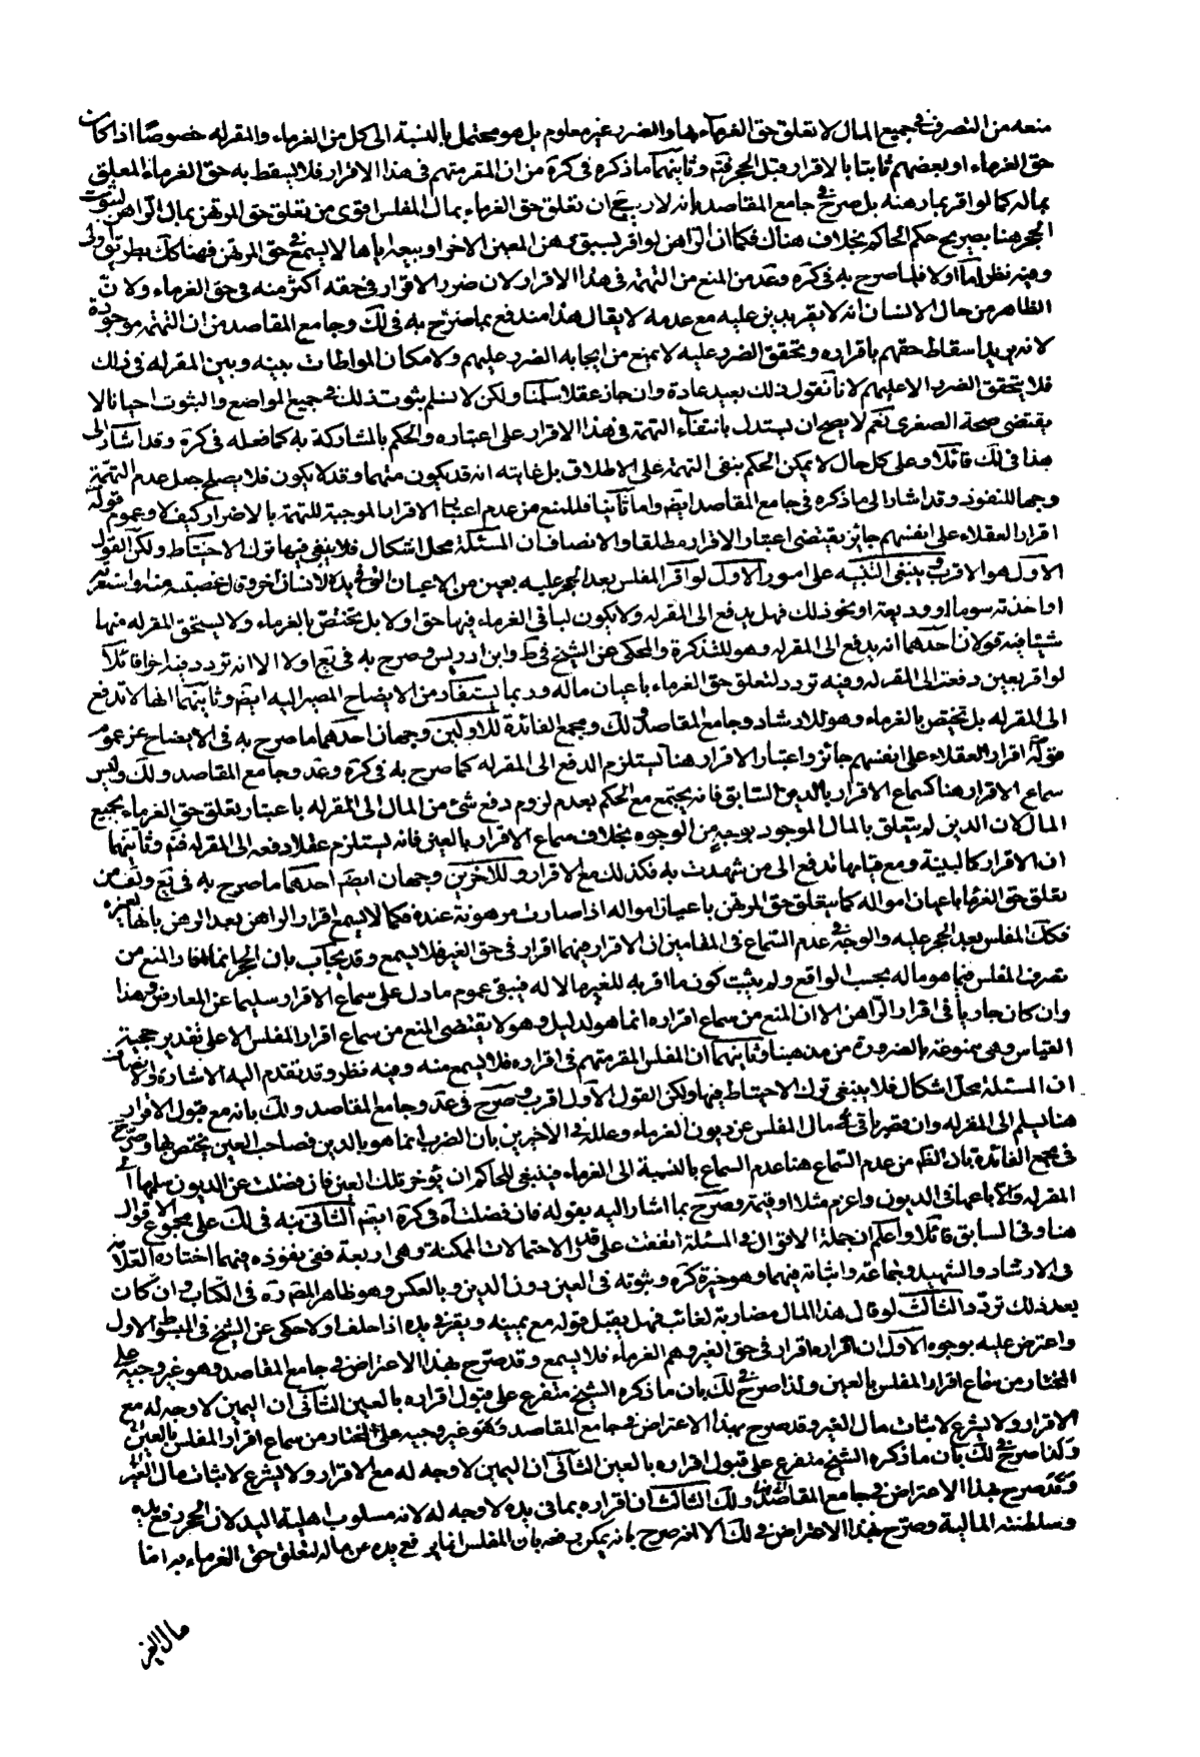 منعه من التصرف في جميع المال لا تعلق حق الغرماء بها والضرر غير معلوم بل هو محتمل بالنسبة الى كل من الغرماء والمقر له خصوصًا اذا كان
حق الغرماء او بعضهم ثابتا بالاقرار قبل الحجر فتم وثانيهما ما ذكره في كرة من ان المقر متهم في هذا الاقرار فلا يسقط به حق الغرماء المعلق
بماله كما لو اقر بمارهنه بل صرح في جامع المقاصد بأنه لا ريب ان تعلق حق الغرماء بمال المفلس اقوى من تعلق حق المرتهن بمال الراهن لثبوت
الحجر هنا بصريح حكم الحاكم بخلاف هناك فكما ان الراهن لو اقر لسبق رهن المعين الاخر او بيعه اياها لا يسمع في حق المرتهن فهنا كك بطريق اولى
وفيه نظر اما اولا فلما صرح به في كره وعد من المنع من التهمة في هذا الاقرار لان ضرر الاقرار في حقه اكثر منه في حق الغرماء ولان
الظاهر من حال الانسان انه لا يقر بدين عليه مع عدمه لا يقال هذا مندفع بما صرح به في لك وجامع المقاصد من ان التهمة موجودة
لانه يريد اسقاط حقهم باقراره وتحقق الضرر عليه لا يمنع من ايجابه الضرر عليهم ولامكان المواطات بينه وبين المقر له في ذلك
فلا يتحقق الضرر الا عليهم لانا نقول ذلك بعيد عادة وان جاز عقلا سلمنا ولكن لا نسلم ثبوت ذلك في جميع المواضع والثبوت احيانا لا
يقتضى صحة الصغرى نعم لا يصح ان يستدل بانتفاء التهمة في هذا الاقرار على اعتباره والحكم بالمشاركة به كما فعله في كرة وقد اشار الى
هذا في لك قائلا وعلى كل حال لا يمكن الحكم بنفى التهمة على الاطلاق بل غايته انه قد يكون متهما وقد لا يكون فلا يصلح جعل عدم التهمة
وجها للنفوذ وقد اشار الى ما ذكره في جامع المقاصد ايضم واما ثانيا فللمنع من عدم اعتبار الاقرار الموجبة للتهمة بالاضرار كيف لا وعموم قوله
اقرار العقلاء على انفسهم جايز يقتضى اعتبار الاقرار مطلقا والانصاف ان المسئلة محل اشكال فلا ينبغى فيها ترك الاحتياط ولكن القول
الاول هو الاقرب وينبغى التنبيه على امور الاول لو اقر المفلس بعد الحجر عليه بعين من الاعيان التى في يده لانسان اخر وقال غصبته منه او استعرته
او اخذته سوما او وديعة او نحو ذلك فهل يدفع الى المقر له ولا يكون لباقى الغرماء فيها حق او لا بل تختص بالغرماء ولا يستحق المقر له منها
شيئا فيه قولان احدهما انه يدفع الى المقر له وهو للتذكرة والمحكى عن الشيخ في ط وابن ادريس وصرح به في يع اولا الا انه تردد فيه اخرا قائلا
لو اقر بعين دفعت الى المقر له وفيه تردد لتعلق حق الغرماء باعيان ماله وربما يستفاد من الايضاح المصير اليه ايضم وثانيهما انها لا تدفع
الى المقر له بل تختص بالغرماء وهو للارشاد وجامع المقاصد ولك ومجمع الفائدة للاولين وجهان احدهما ما صرح به في الايضاح عن عموم
قوله اقرار العقلاء على انفسهم جائز واعتبار الاقرار هنا يستلزم الدفع الى المقر له كما صرح به في كره وعد وجامع المقاصد ولك وليس
سماع الاقرار هنا كسماع الاقرار بالدين السابق فانه يجتمع مع الحكم بعدم لزوم دفع شئ من المال الى المقر له باعتبار تعلق حق الغرماء بجميع
المال لان الدين لم يتعلق بالمال الموجود بوجه من الوجوه بخلاف سماع الاقرار بالعين فانه يستلزم عقلا دفعه الى المقر له فتم وثانيهما
ان الاقرار كالبينة ومع قيامها تدفع الى من شهدت به فكذلك مع الاقرار وللاخرين وجهان ايضم احدهما ما صرح به في يع ولك من
تعلق حق الغرماء باعيان امواله كما يتعلق حق المرتهن باعيان امواله اذا صارت مرهونة عنده فكما لا يسمع اقرار الراهن بعد الرهن بانها لغيره
فكك المفلس بعد الحجر عليه والوجه في عدم السماع في المقامين ان الاقرار فيهما اقرار في حق الغير فلا يسمع وقد يجاب بان الحجر انما افاد المنع من
تصرف المفلس فيما هو ماله بحسب الواقع ولم يثبت كون ما اقر به للغير مالا له فيبقى عموم ما دل على سماع الاقرار سليما عن المعارض وهذا
وان كان جاريا في اقرار الراهن الا ان المنع من سماع اقراره انما هو لدليل وهو لا يقتضى المنع من سماع اقرار المفلس الا على تقدير حجية
القياس وهى ممنوعة بالضرورة من مذهبنا وثانيهما ان المفلس المقر متهم في اقراره فلا يسمع منه وفيه نظر وقد تقدم اليه الاشارة والانصاف
ان المسئلة محل اشكال فلا ينبغى ترك الاحتياط فيها ولكن القول الاول اقرب وصرح في عد وجامع المقاصد ولك بانه مع قبول الاقرار
هنا يسلم الى المقر له وان قصر باقى مال المفلس عن ديون الغرماء وعلله في الاخيرين بان الضرب انما هو بالدين فصاحب العين يختص بها وصرح
في مجمع الفائدة بان الظم من عدم السماع هنا عدم السماع بالنسبة الى الغرماء فينبغى للحاكم ان يؤخر تلك العين فان فضلت عن الديون سلمها الى
المقر له والا باعها في الديون واغرم مثلا او قيمة وصرح بما اشار اليه بقوله فان فضلت اه في كرة ايضم الثانى نبه في لك على مجموع الاقوال
هنا وفى السابق قائلا واعلم ان جملة الاقوال في المسئلة اتفقت على قدر الاحتمالات الممكنة وهى اربعة فنفى نفوذه فيهما اختاره العلامة
في الارشاد والشهيد وجماعة واثباته فيهما وهو خيرة كره وثبوته في العين دون الدين وبالعكس وهو ظاهر المصم ره في الكتاب وان كان
بعد ذلك تردد الثالث لو قال هذا المال مضاربة لغائب فهل يقبل قوله مع يمينه ويقر في يده اذا حلف او لا حكى عن الشيخ في المبسوط الاول
واعترض عليه بوجوه الاول ان اقراره اقرار في حق الغير وهم الغرماء فلا يسمع وقد صرح بهذا الاعتراض في جامع المقاصد وهو غير وجيه على
المختار من سماع اقرار المفلس بالعين ولذا صرح في لك بان ما ذكره الشيخ متفرع على قبول اقراره بالعين الثانى ان اليمين لا وجه له مع
الاقرار ولا يشرع لاثبات مال الغير وقد صرح بهذا الاعتراض في جامع المقاصد وهو غير وجيه على المختار من سماع اقرار المفلس بالعين
ولذا صرح في لك بان ما ذكره الشيخ متفرع على قبول اقراره بالعين الثانى ان اليمين لا وجه له مع الاقرار ولا يشرع لاثبات مال الغير
وقد صرح بهذا الاعتراض في جامع المقاصد ولك الثالث ان اقراره بما فى يده لا وجه له لانه مسلوب اهلية اليد لان الحجر رفع يده
وسلطنته المالية وصرح بهذا الاعتراض في لك الا انه صرح بانه يمكن دفعه بان المفلس انما يرفع يده عن ماله لتعلق حق الغرماء به اما
مال الغير